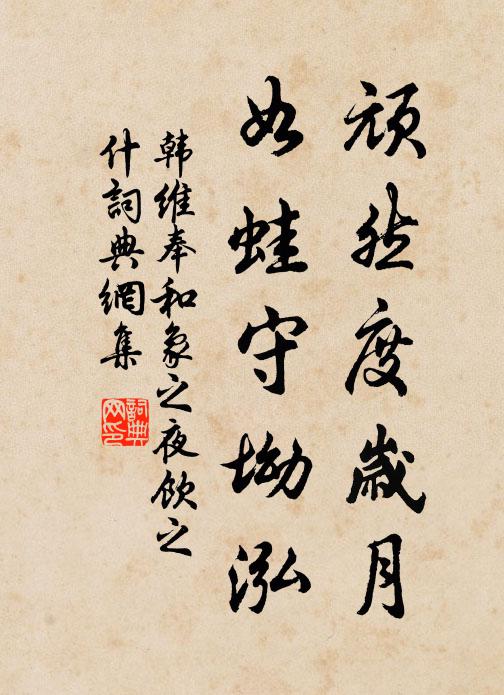 頑然度歲月
如蛙守坳泓
韩維奉和象之夜飲之
什詞典網集
詞典
网印